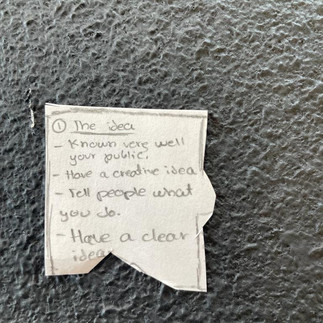 ① The idea
- Known very well
your public.
- Have a creative idea
- Tell people what
you do.
- Have a clear
idea